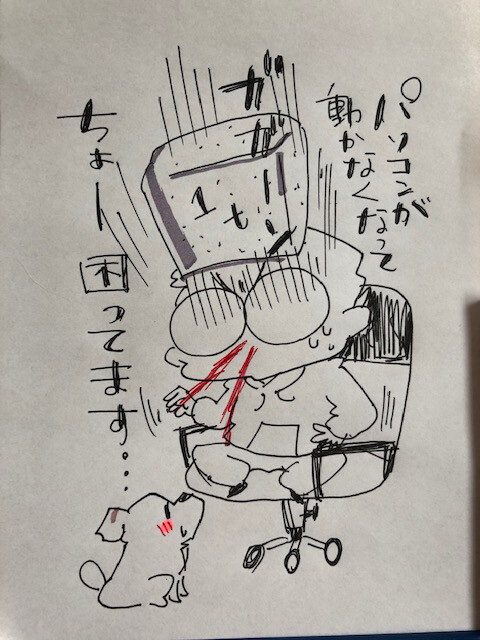 パソコンが
動かなくなって
ガガーン
1t
ちょー困ってます...